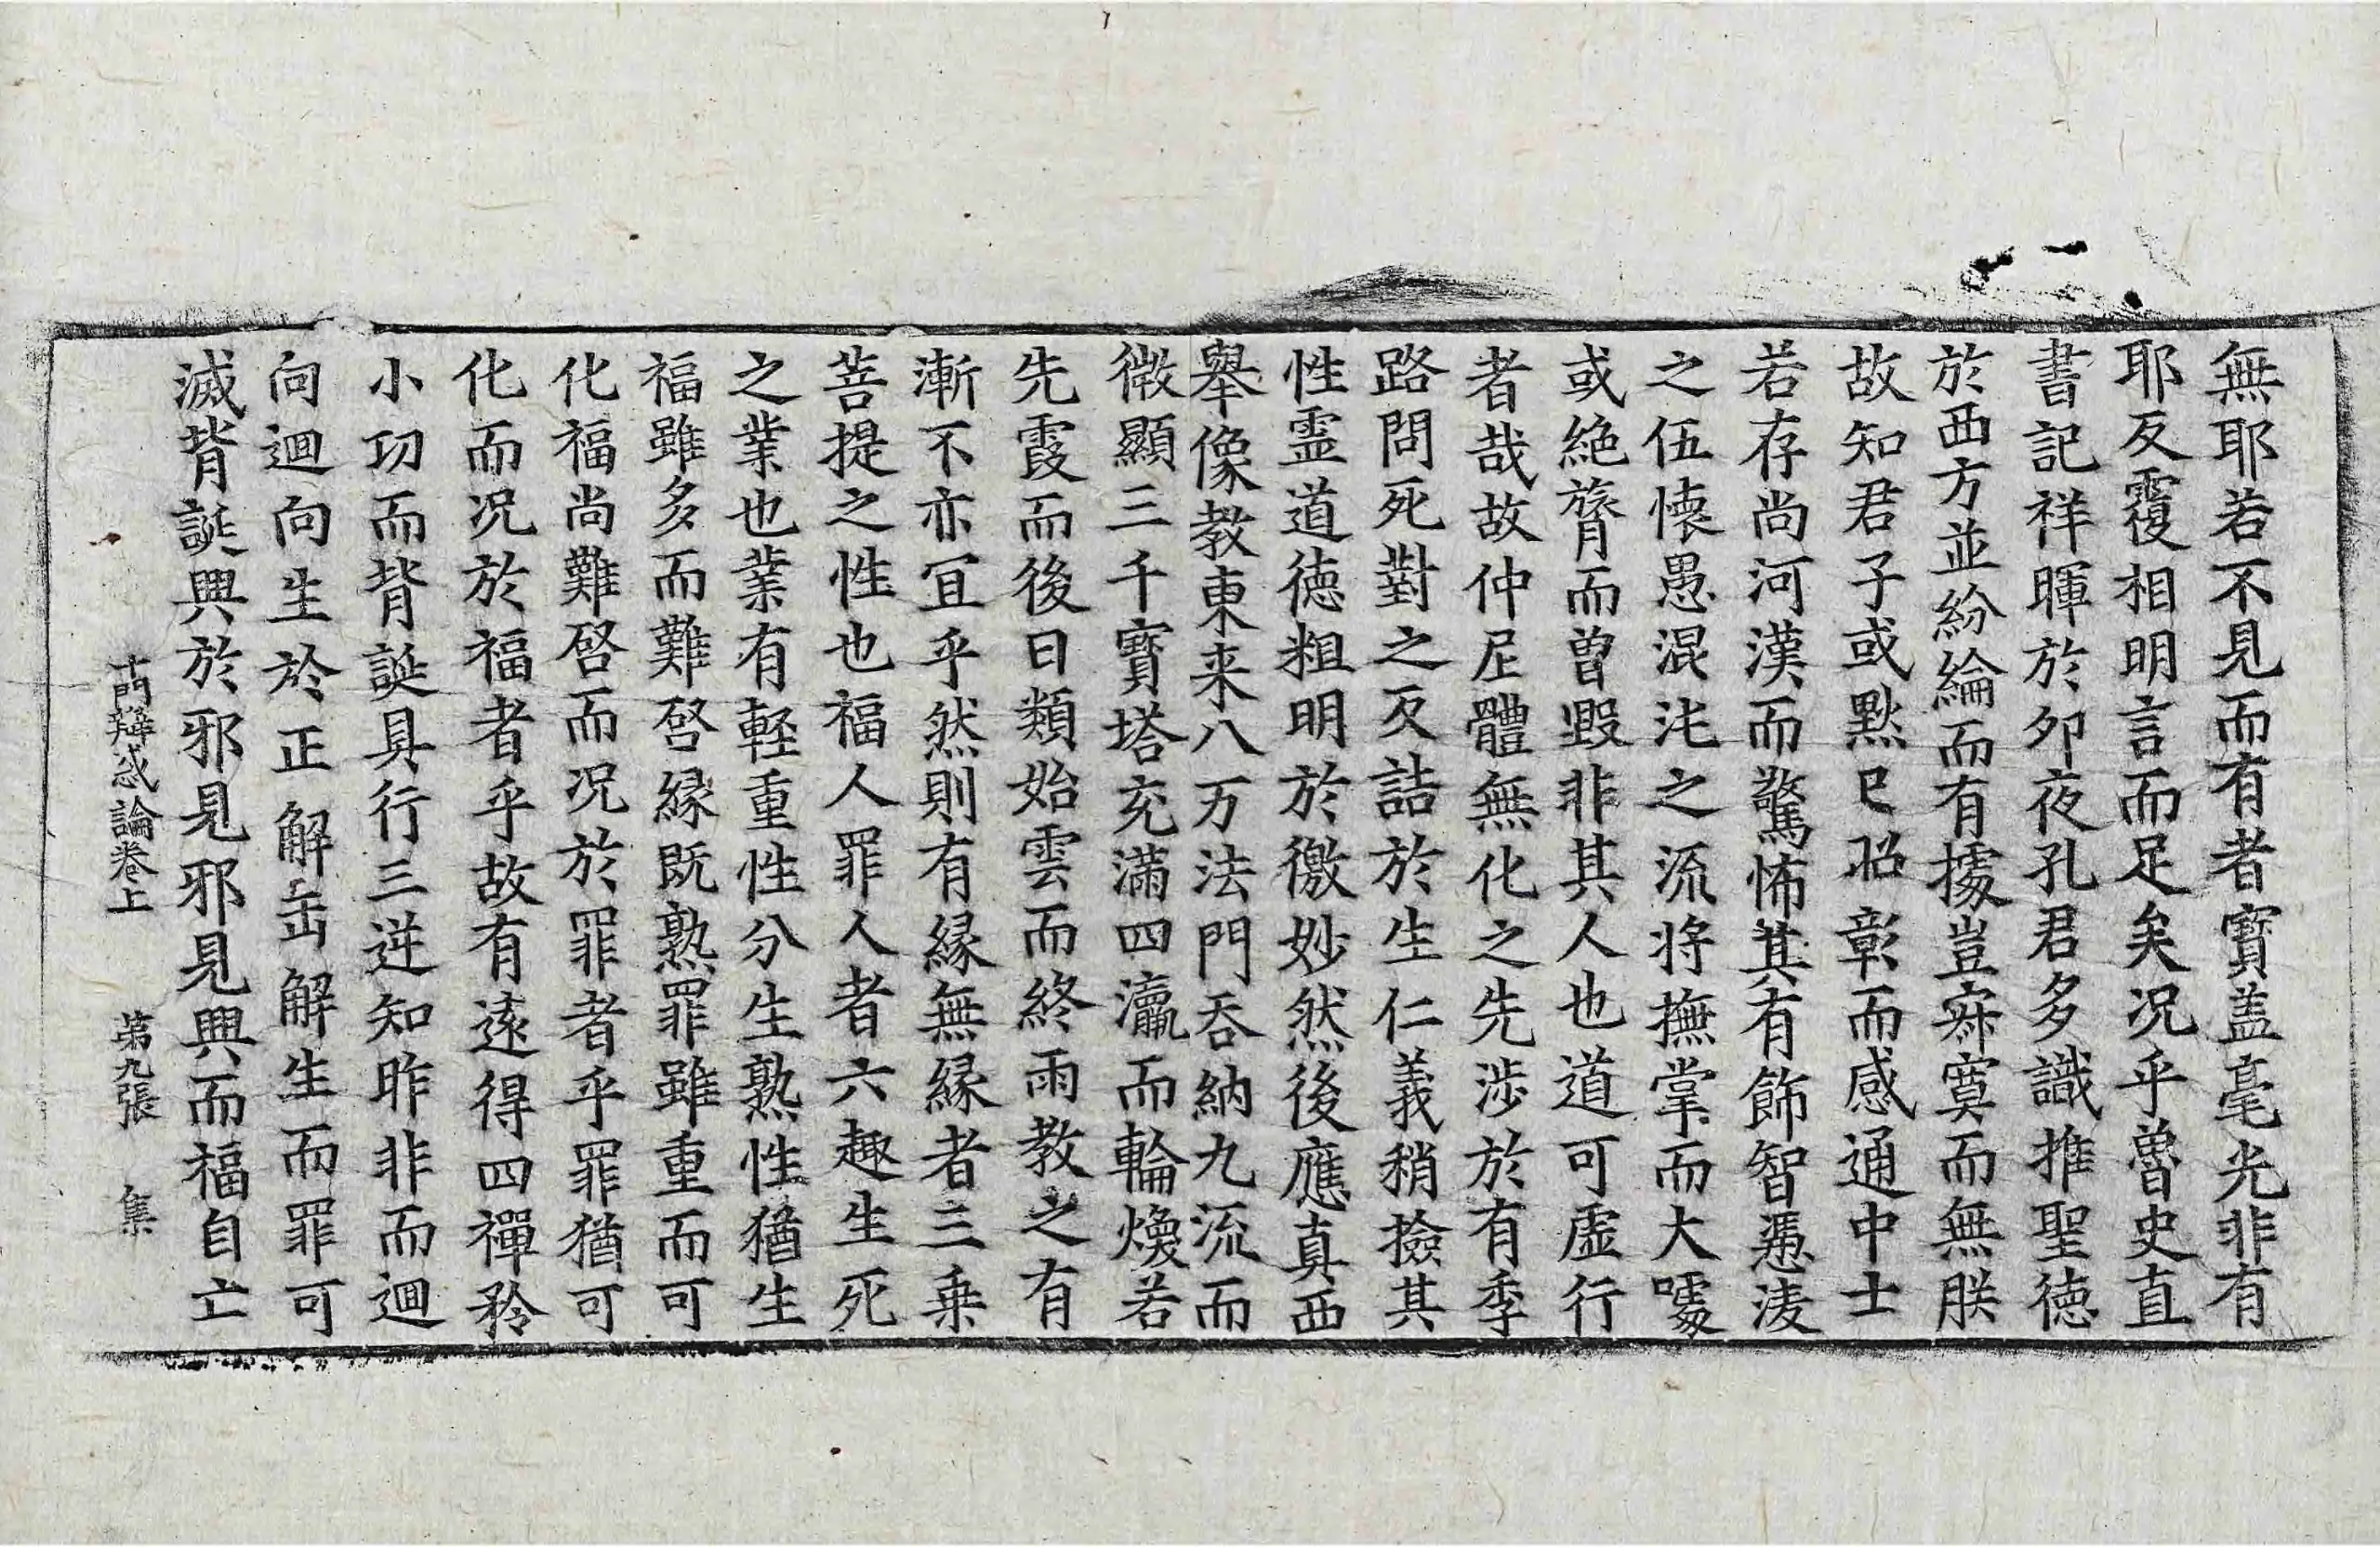 無耶若不見而有者寶盖毫光非有
耶反覆相明言而足矣况乎魯史直
書記祥暉於夘夜孔君多識推聖徳
於西方並紛綸而有據豈寂寞而無朕
故知君子或黙已昭彰而感通中士
若存尚河漢而驚怖其有飾智憑淩
之伍懐愚混沌之流将撫掌而大噱
或絶膂而曽毀非其人也道可虛行
者哉故仲尼體無化之先渉於有季
路問死對之反詰於生仁義稍撿其
性霊道徳粗明於徼妙然後應真西
舉像教東来八万法門吞納九流而
微顯三千寳塔充滿四瀛而輪煥若
先霞而後日類始雲而終雨教之有
漸不亦冝乎然則有縁無縁者三乗
菩提之性也福人罪人者六趣生死
之業也業有輕重性分生熟性猶生
福雖多而難啓縁既熟罪雖重而可
化福尚難啓而况於罪者乎罪猶可
化而况於福者乎故有逺得四禪矜
小功而背誕具行三逆知昨非而迴
向迴向生於正解缶解生而罪可
滅背誕興於邪見邪見興而福自亡
十門辯惑論卷上 第九張 集